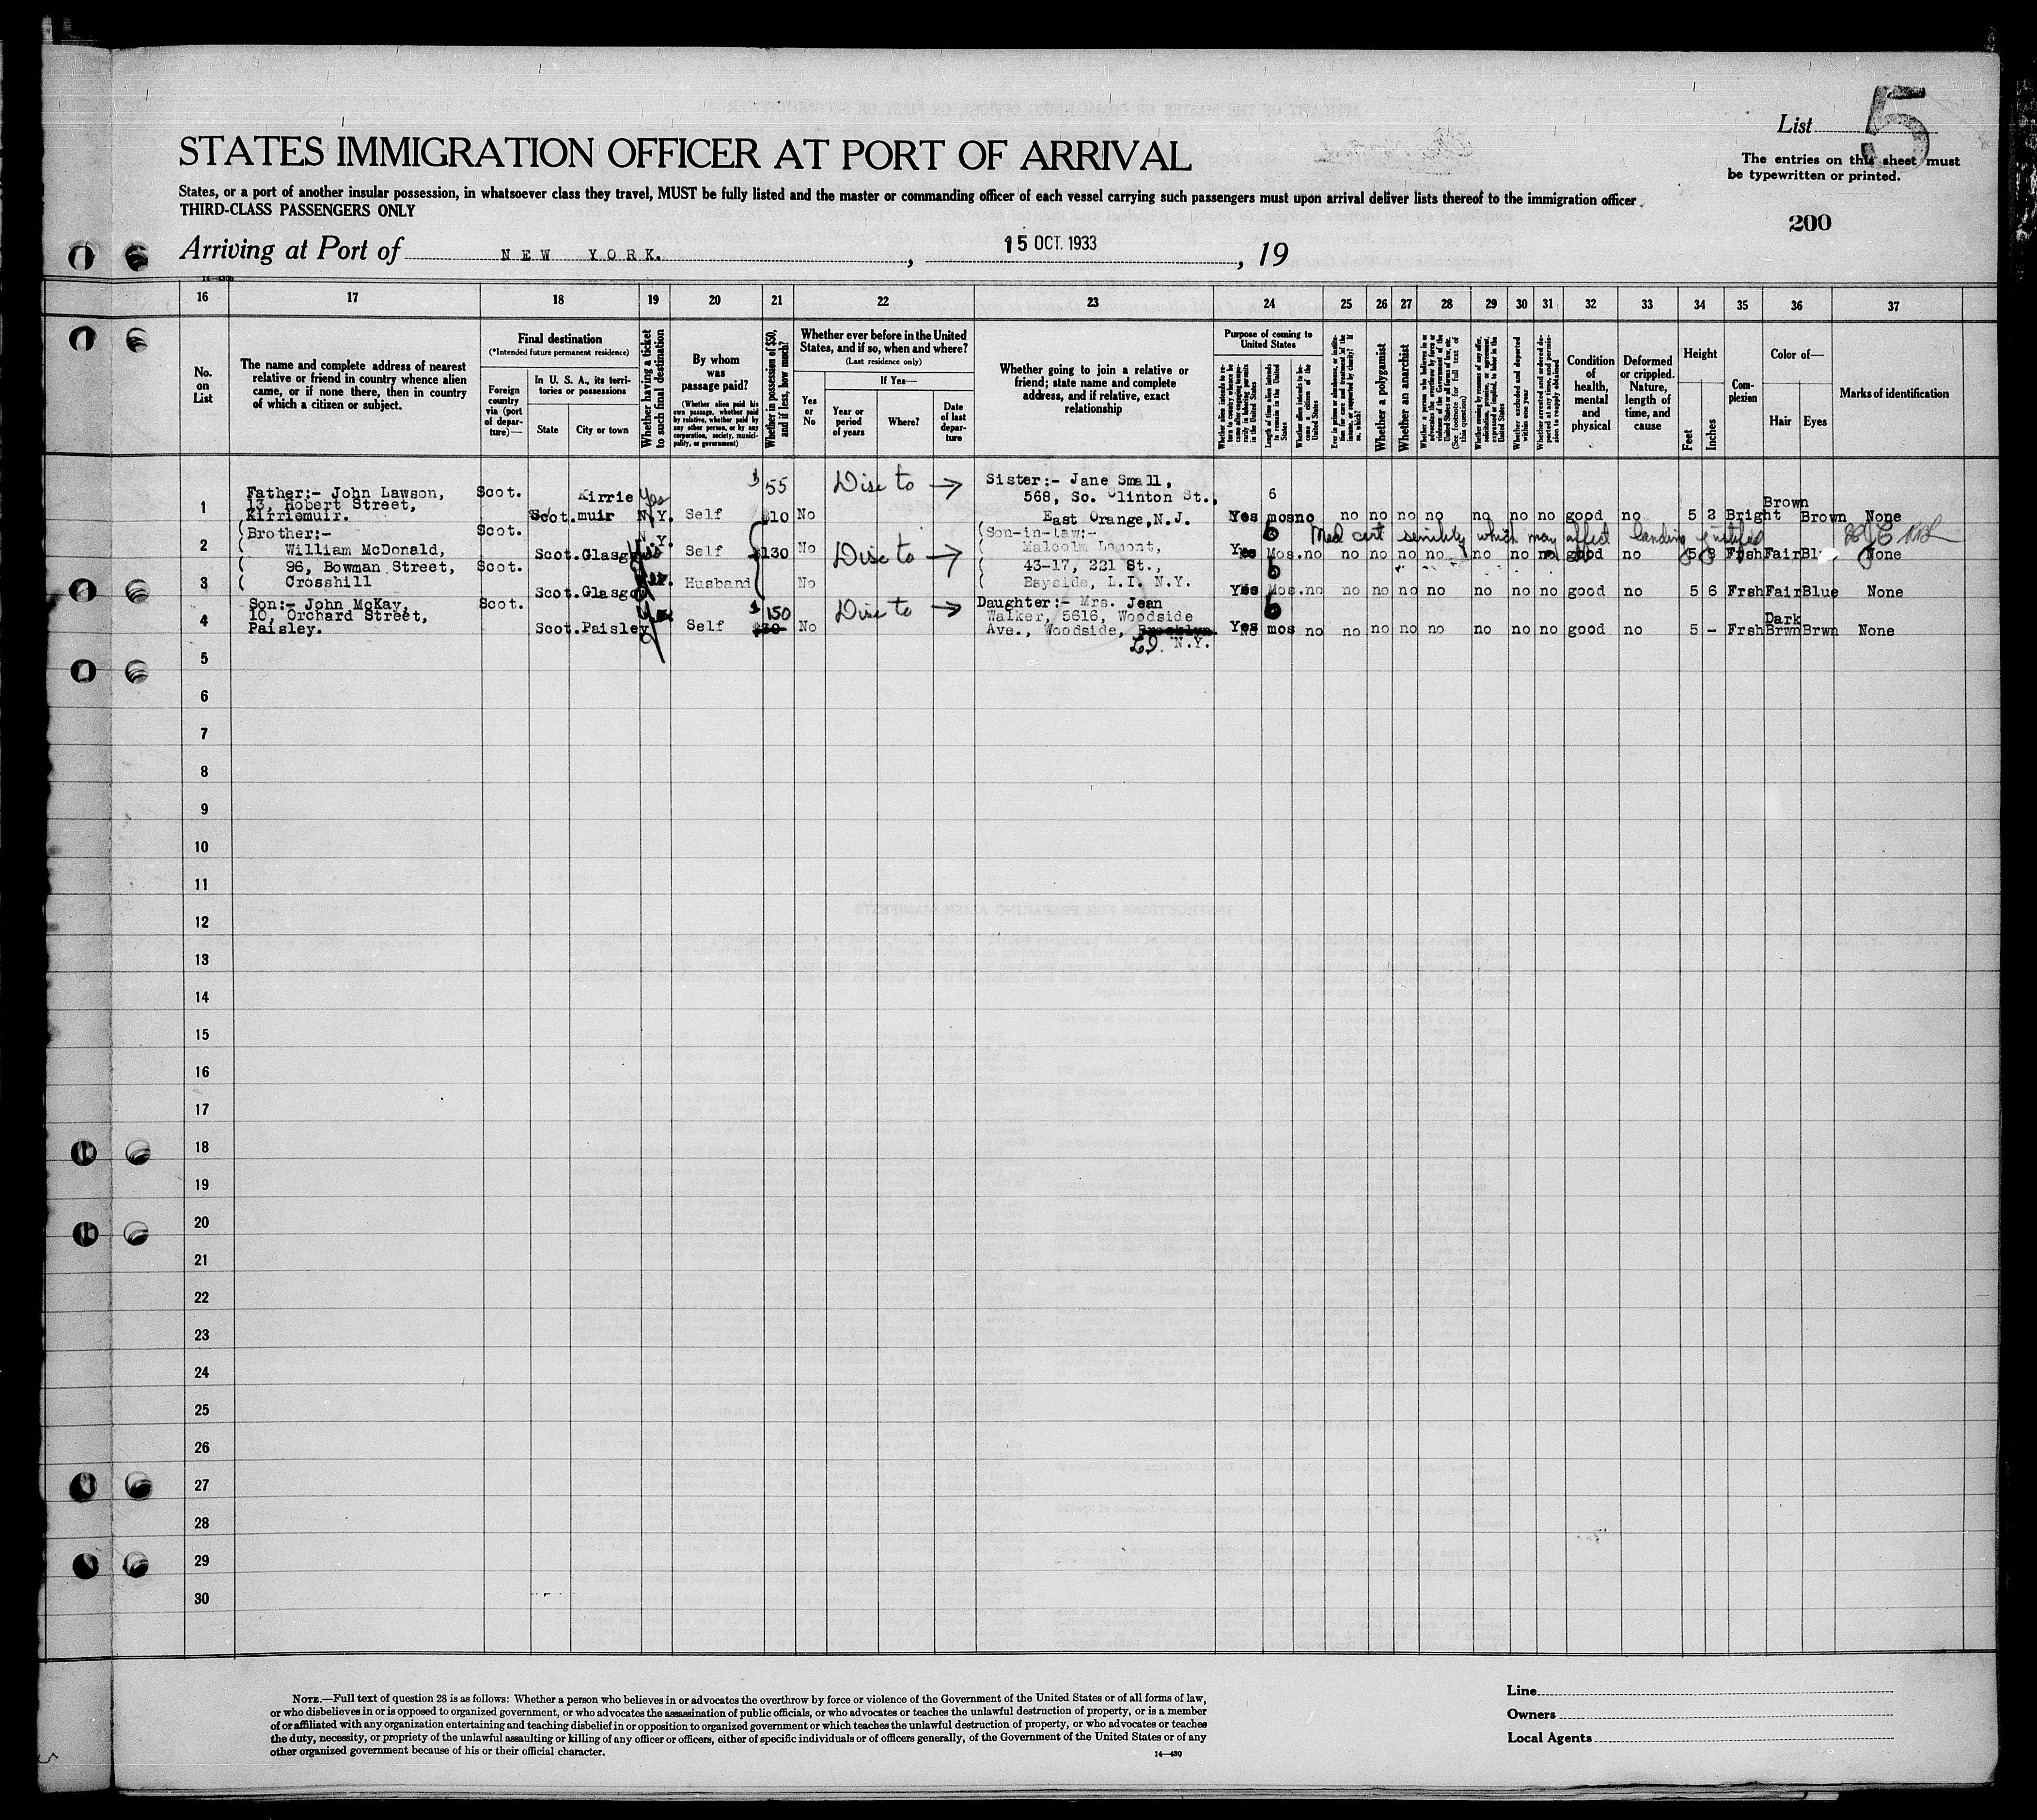 List 5
The entries on this sheet must
be typewritten or printed.
STATES IMMIGRATION OFFICER AT PORT OF ARRIVAL
States, or a port of another insular possession, in whatsoever class they travel, MUST be fully listed and the master or commanding officer of each vessel carrying such passengers must upon arrival deliver lists thereof to the immigration officer
THIRD-CLASS PASSENGERS ONLY
200
Arriving at Port of NEW YORK. , 15 OCT. 1933 , 19
16 17 18 19 20 21 22 23 24 25 26 27 28 29 30 31 32 33 34 35 36 37
No. on List
The name and complete address of nearest
relative or friend in country whence alien
came, or if none there, then in country
of which a citizen or subject.
Final destination
(*Intended future permanent residence)
Foreign country via (port of departure)—
In U. S. A., its territories or possessions
State
City or town
Whether having a ticket to such final destination
By whom was passage paid?
(Whether alien paid his own passage, whether paid by relative, whether paid by any other person, or by any corporation, society, municipality, or government)
Whether in possession of $50, and if less, how much?
Whether ever before in the United
States, and if so, when and where?
(Last residence only)
Yes or No
If Yes—
Year or period of years
Where?
Date of last departure
Whether going to join a relative or
friend; state name and complete
address, and if relative, exact
relationship
Purpose of coming to United States
Length of time alien intends to remain in the United States
Whether alien intends to become a citizen of the United States
Whether a polygamist
Whether an anarchist
Whether excluded and deported within one year
Condition of health, mental and physical
Deformed or crippled. Nature, length of time, and cause
Height
Feet
Inches
Complexion
Color of—
Hair
Eyes
Marks of identification
1 Father:- John Lawson,
13, Robert Street,
Kirriemuir.
Scot. Scot. Kirrie muir Yes N.Y. Self $55 $10 No
Sister:- Jane Small,
568, So. Clinton St.,
East Orange, N.J.
Yes 6 mos no no no no no no no no good no 5 2 Bright Brown Brown None
2 (Brother:-
William McDonald,
Scot. Scot. Glasgow N.Y. Self $130 No
(Son-in-law:-
Malcolm Lamont,
Yes 6 Mos. no no no no no no no no good no Frsh Fair None
Med cert senility which may affect landing
3 96, Bowman Street,
Crosshill
Scot. Scot. Glasgow Husband No
43-17, 221 St.,
Bayside, L.I. N.Y.
Yes 6 Mos. no no no no no no no no good no 5 6 Frsh Fair Blue None
4 Son:- John McKay,
10, Orchard Street,
Paisley.
Scot. Scot. Paisley Self $150 $30 No
Daughter:- Mrs. Jean
Walker, 5616, Woodside
Ave., Woodside, Brooklyn
L.I. N.Y.
Yes 6 mos no no no no no no no no good no 5 - Frsh Dark Brwn Brwn None
5
6
7
8
9
10
11
12
13
14
15
16
17
18
19
20
21
22
23
24
25
26
27
28
29
30
NOTE.—Full text of question 28 is as follows: Whether a person who believes in or advocates the overthrow by force or violence of the Government of the United States or of all forms of law,
or who disbelieves in or is opposed to organized government, or who advocates the assassination of public officials, or who advocates or teaches the unlawful destruction of property, or is a member
of or affiliated with any organization entertaining and teaching disbelief in or opposition to organized government or which teaches the unlawful destruction of property, or who advocates or teaches
the duty, necessity, or propriety of the unlawful assaulting or killing of any officer or officers, either of specific individuals or of officers generally, of the Government of the United States or of any
other organized government because of his or their official character.
14—430
Line
Owners
Local Agents